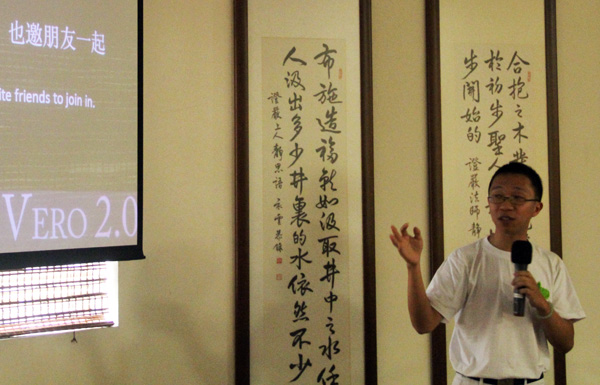 也邀朋友一起
ite friends to join in.
VERO 2.0
布施造福就如汲取井中之水任
人汲出多少井裏的水依然不少
證嚴上人靜思語
合抱之木
於初步聖人
步開始的
證嚴法師靜